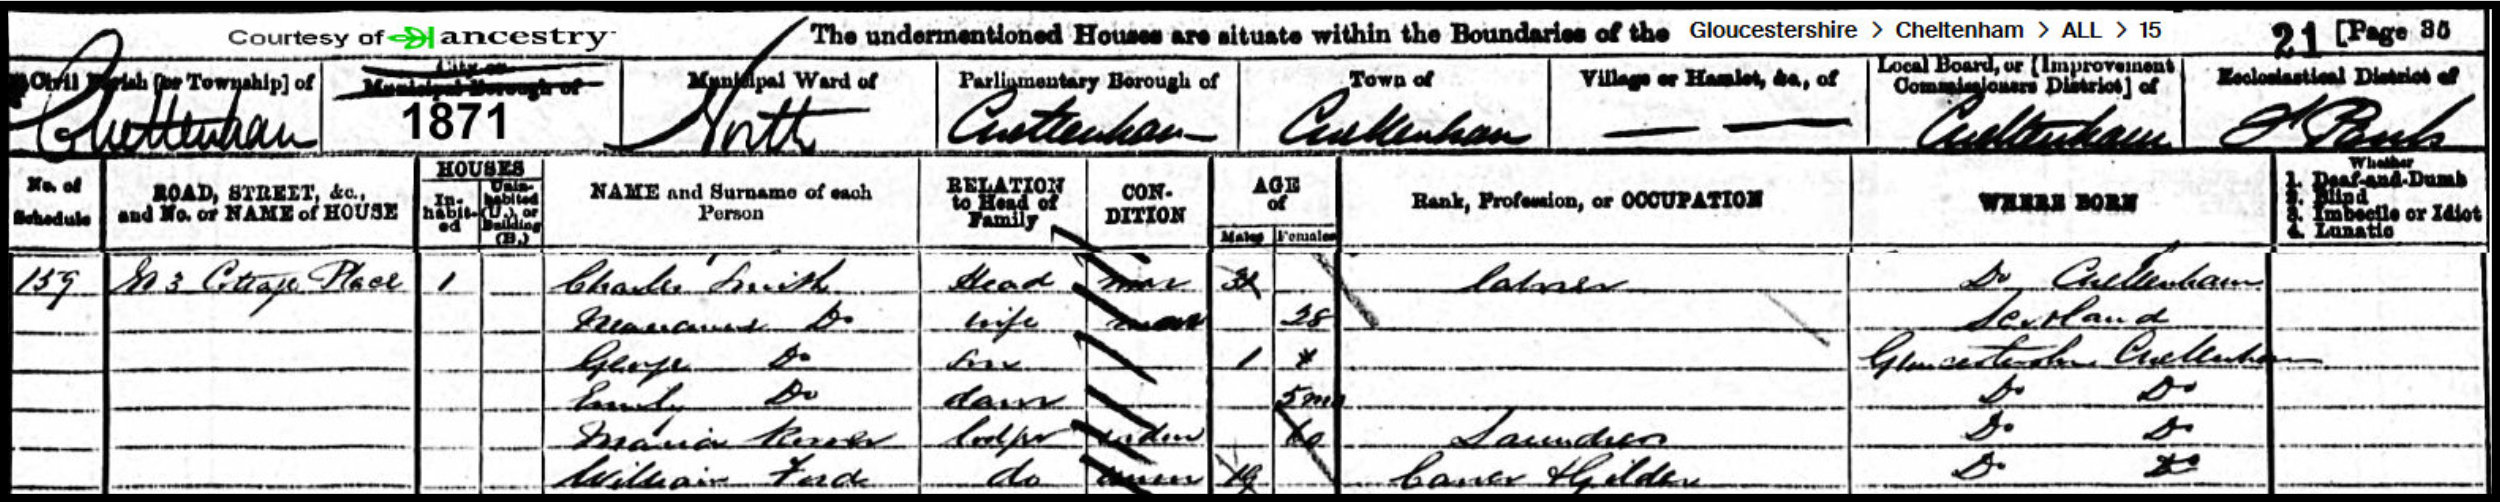 Courtesy of ancestry The undermentioned Houses are situate within the Boundaries of the Gloucestershire > Cheltenham > ALL > 15 21 [Page 35
Civil Parish [or Township] of City or Municipal Borough of Municipal Ward of Parliamentary Borough of Town of Village or Hamlet, &c., of Local Board, or [Improvement Commissioners District] of Ecclesiastical District of
Cheltenham 1871 North Cheltenham Cheltenham Cheltenham St Pauls
No. of Schedule ROAD, STREET, &c., and No. or NAME of HOUSE HOUSES In-habit-ed Unin-habited (U.), or Building (B.) NAME and Surname of each Person RELATION to Head of Family CON-DITION AGE of Males Females Rank, Profession, or OCCUPATION WHERE BORN Whether 1. Deaf-and-Dumb 2. Blind 3. Imbecile or Idiot 4. Lunatic
159 No 3 Cottage Place 1 Charles Smith Head mar Do Cheltenham
Do wife mar 28 Scotland
George Do son 1 Gloucestershire Cheltenham
Emily Do daur 5 mo Do Do
Maria lodger 60 Laundress Do Do
William Ford do 19 Carver & Gilder Do Do